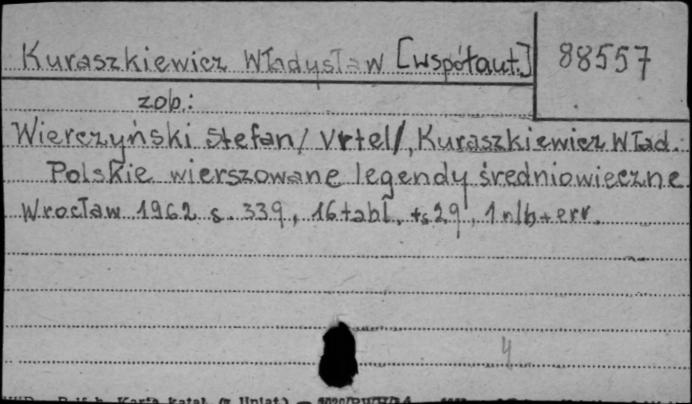 Kuraszkiewicz Władysław [współaut.] 88557
zob.:
Wierczyński Stefan/ Vrtel/, Kuraszkiewicz Wład.
Polskie wierszowane legendy średniowieczne
Wrocław 1962 s. 339, 16 tabl. + s 29, 1 nlb + err.
4